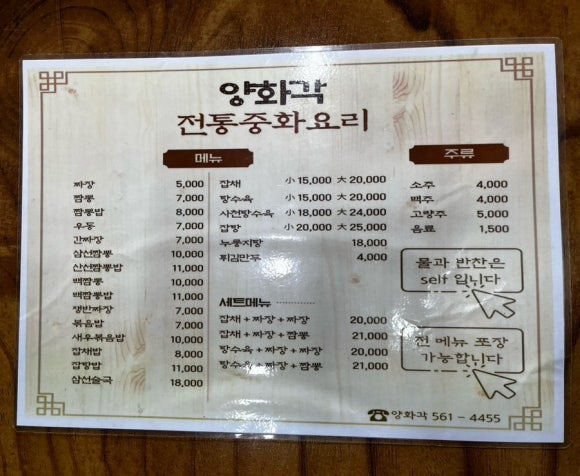 양화각
전통중화요리
메뉴
짜장 5,000
짬뽕 7,000
짬뽕밥 8,000
우동 7,000
간짜장 7,000
삼선짬뽕 10,000
산산짬뽕밥 11,000
백짬뽕 10,000
백짬뽕밥 11,000
쟁반짜장 7,000
볶음밥 7,000
새우볶음밥 10,000
잡채밥 8,000
잡탕밥 11,000
삼선술국 18,000
잡채 小 15,000 大 20,000
탕수육 小 15,000 大 20,000
사천탕수육 小 18,000 大 24,000
잡탕 小 20,000 大 25,000
누룽지탕 18,000
튀김만두 4,000
세트메뉴
잡채 + 짜장 + 짜장 20,000
잡채 + 짜장 + 짬뽕 21,000
탕수육 + 짜장 + 짜장 20,000
탕수육 + 짜장 + 짬뽕 21,000
주류
소주 4,000
맥주 4,000
고량주 5,000
음료 1,500
물과 반찬은
self 입니다
전 메뉴 포장
가능합니다
양화각 561 - 4455